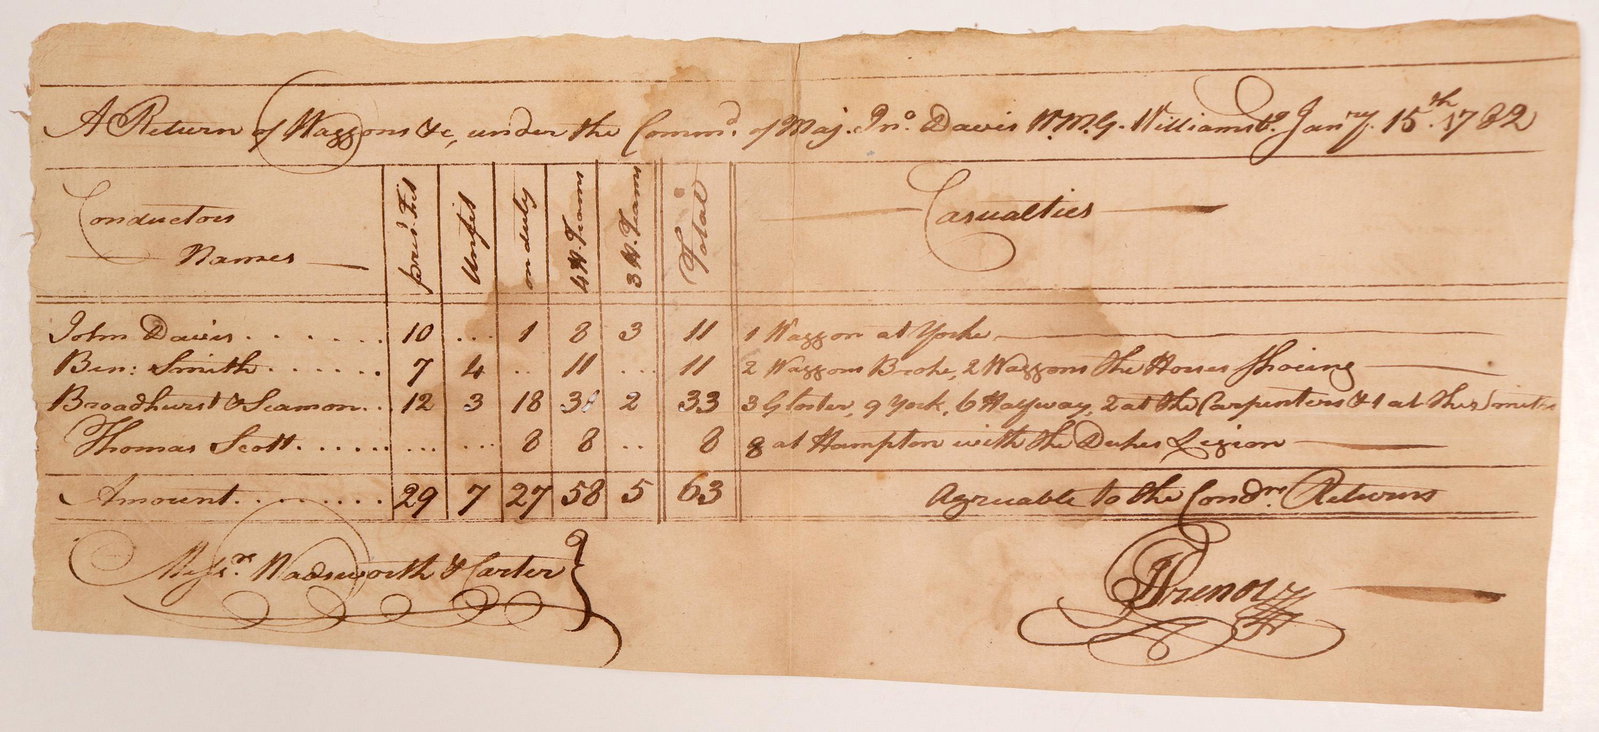 A Return of Waggons &c, under the Comm^d. of Maj. Jn^o. Davis W.M.G. Williamsb^g. Jan^ry. 15^th. 1782
Conductors Names pres.^t Fit Unfit on duty 4 H. Teams 3 H. Teams Total Casualties
John Davis . . . . . . . 10 ... 1 8 3 11 1 Waggon at Yorke
Ben: Smith . . . . . . 7 4 .. 11 ... 11 2 Waggons Broke, 2 Waggons the Horses Shoeing
Broadhurst & Seamon. . 12 3 18 31 2 33 3 Gloster, 9 York, 6 Halfway, 2 at the Carpenters & 1 at the Smiths
Thomas Scott. . . . . . ... ... 8 8 .. 8 8 at Hampton with the Dukes Legion
Amount. . . . . . . . 29 7 27 58 5 63 Agreuable to the Cond^rs. Returns
Mess^rs. Wadsworth & Carter